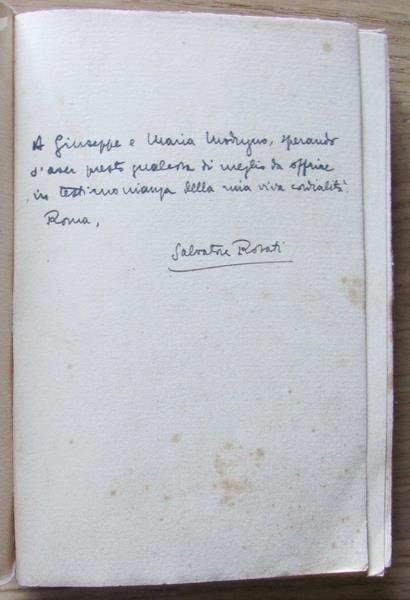 A Giuseppe e Maria Modugno, sperando
d'aver presto qualcosa di meglio da offrire
in testimonianza della mia viva cordialità.
Roma,
Salvatore Rosati